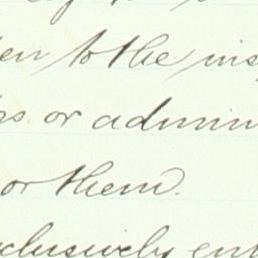 to the ins
or admin
or them.
clusively en